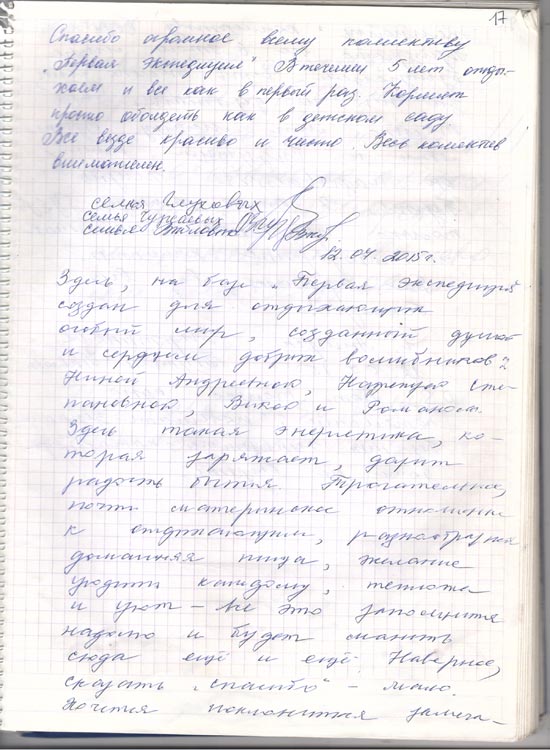 17
Спасибо огромное всему коллективу
"Первая Экспедиция" В течении 5 лет отды-
хаем и все как в первый раз. Кормят
просто обалдеть как в детском саду
Все везде красиво и чисто. Весь коллектив
внимателен.
семья Глуховых
семья
семья
12.04.2015г.
Здесь, на базе "Первая экспедиция"
создан для отдыхающих
особый мир, созданный душой
и сердцем добрых волшебников:
Ниной Андреевной, Надеждой Сте-
пановной, Викой и Романом.
Здесь такая энергетика, ко-
торая заряжает, дарит
радость бытия. Трогательное,
почти материнское отношение
к отдыхающим, разнообразная
домашняя пища, желание
угодить каждому, теплота
и уют – все это запомнится
надолго и будет манить
сюда ещё и ещё. Наверное,
сказать "спасибо" – мало.
Хочется поклониться замеча-